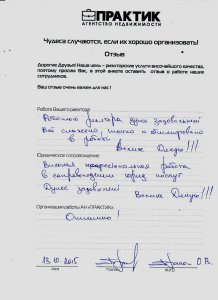 ПРАКТИК
АГЕНТСТВО НЕДВИЖИМОСТИ
Чудеса случаются, если их хорошо организовать!
Отзыв
Дорогие Друзья! Наша цель – риэлторские услуги высочайшего качества,
поэтому просим Вас, в этой анкете оставить отзыв о работе наших
сотрудников.
Ваш отзыв очень важен для нас!
Работа Вашего риэлтора
дуже задоволені
в роботі
Велике Дякую!!!
Юридическое сопровождение
Висока професіональна робота
в
юрид
Дуже задоволені Велике Дякую!!!
Организация работы АН «ПРАКТИК»
Отлично!
13.10.2015
О.В.
Дата
Ф.И.О.